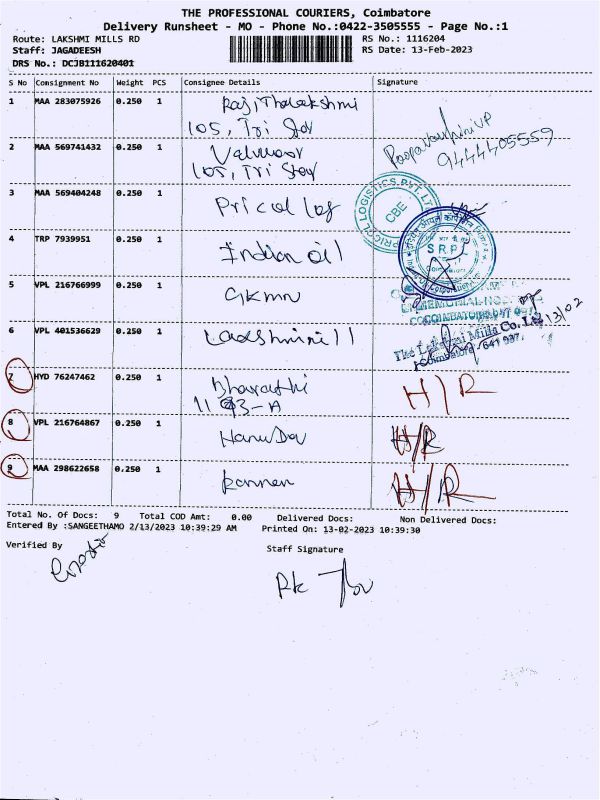 THE PROFESSIONAL COURIERS, Coimbatore
Delivery Runsheet - MO - Phone No.:0422-3505555 - Page No.:1
Route: LAKSHMI MILLS RD
RS No.: 1116204
Staff: JAGADEESH
RS Date: 13-Feb-2023
DRS No.: DCJB111620401
S No Consignment No Weight PCS Consignee Details Signature
1 MAA 283075926 0.250 1
105, Tri Star
2 MAA 569741432 0.250 1
105, Tri Star
9444405559
3 MAA 569404248 0.250 1 Pricol log
PRICOL LOGISTICS PVT. LTD
CBE
4 TRP 7939951 0.250 1 Indian oil
SRPL
5 VPL 216766999 0.250 1 GKMN
MEMORIAL
6 VPL 401536629 0.250 1 Lakshmimill
13/02
The Lakshmi Mills Co. Ltd
Coimbatore - 641 037.
7 HYD 76247462 0.250 1 Bharathi H/R
1193-A
8 VPL 216764867 0.250 1 H/R
9 MAA 298622658 0.250 1 kannan H/R
Total No. Of Docs: 9 Total COD Amt: 0.00 Delivered Docs: Non Delivered Docs:
Entered By :SANGEETHAMO 2/13/2023 10:39:29 AM Printed On: 13-02-2023 10:39:30
Verified By
Staff Signature